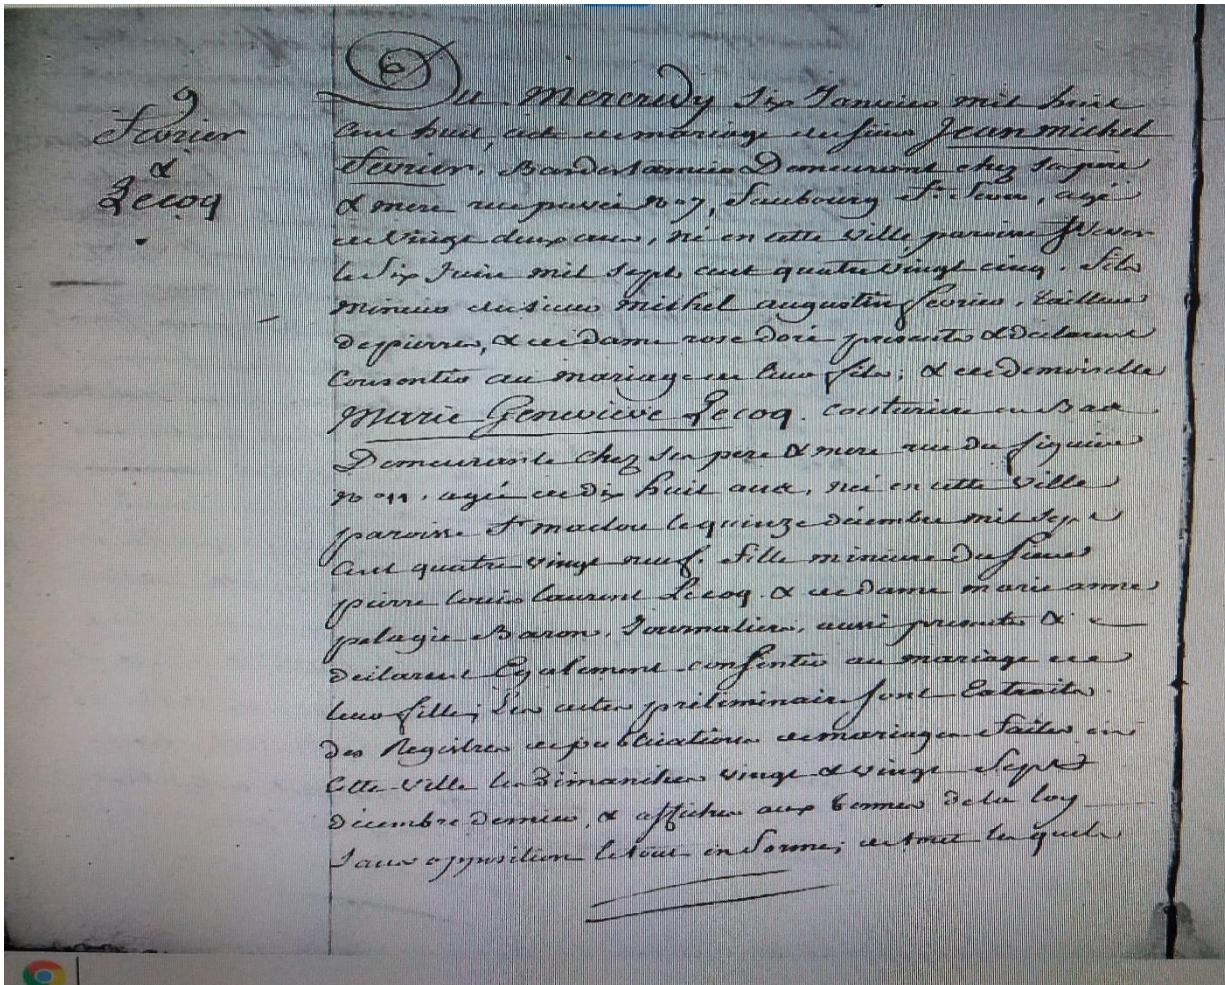 9
Fevrier
&
Lecoq
Du mercredy Six Janvier mil huit
Cent huit, acte de mariage du sieur Jean michel
Fevrier, Demeurant chez son pere
& mere rue pavée no 7, faubourg St Sever, agé
de vingt deux ans, né en cette ville, paroisse St Sever
le Six Juin mil sept cent quatre vingt cinq. fils
mineur du sieur michel augustin fevrier, tailleur
de pierres, & de dame rose doré presents & declarent
Consentir au mariage de leur fils; & de demoiselle
Marie Genevieve Lecoq. Couturiere en
Demeurante chez son pere & mere rue du figuier
no 11. agée de dix huit ans, née en cette ville
paroisse St maclou le quinze décembre mil sept
Cent quatre vingt neuf. fille mineure du sieur
pierre louis laurent Lecoq. & de dame marie anne
pelagie Baron, Journaliers, aussi presents &
declarent Egalement consentir au mariage de
leur fille; Les actes préliminaires sont Extraits
des Registres de publications de mariages faites en
Cette ville les Dimanches vingt & vingt Sept
décembre dernier, & affiches aux termes de la loy
Sans opposition le tout en forme; de tout les quels